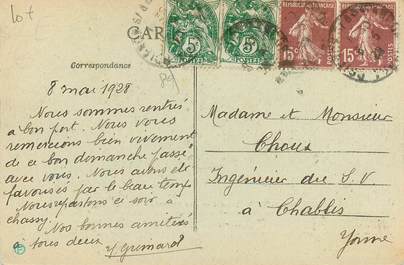 lot
CAR
RÉPUBLIQUE FRANÇAISE
5
5
15
15
POSTES
POSTES
Correspondance
8 mai 1928
Nous sommes rentrés
à bon port. Nous vous
remercions bien vivement
de ce bon dimanche passé
avec vous. Nous avons été
favorisés par le beau temps
Nous repartons ce soir à
chassy.
Nos bonnes amitiés
à tous deux
Madame et Monsieur
Choux
Ingénieur du S.V
à Chablis
Yonne